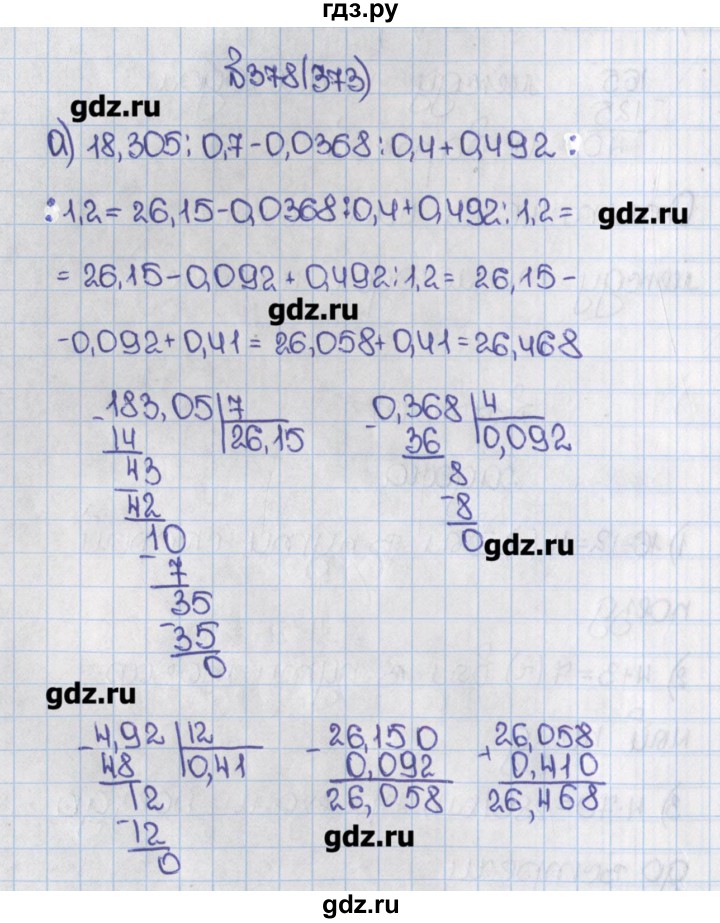 гдз.ру
№378(373)
gdz.ru
а) 18,305:0,7-0,0368:0,4+0,492:
:1,2=26,15-0,0368:0,4+0,492:1,2=
gdz.ru
=26,15-0,092+0,492:1,2=26,15-
gdz.ru
-0,092+0,41=26,058+0,41=26,468
-183,05|7
14 |26,15
43
-42
10
-7
35
-35
0
-0,368|4
36 |0,092
8
-8
0
gdz.ru
gdz.ru
-4,92|12
48 |0,41
12
-12
0
-26,150
0,092
26,058
+26,058
0,410
26,468
gdz.ru